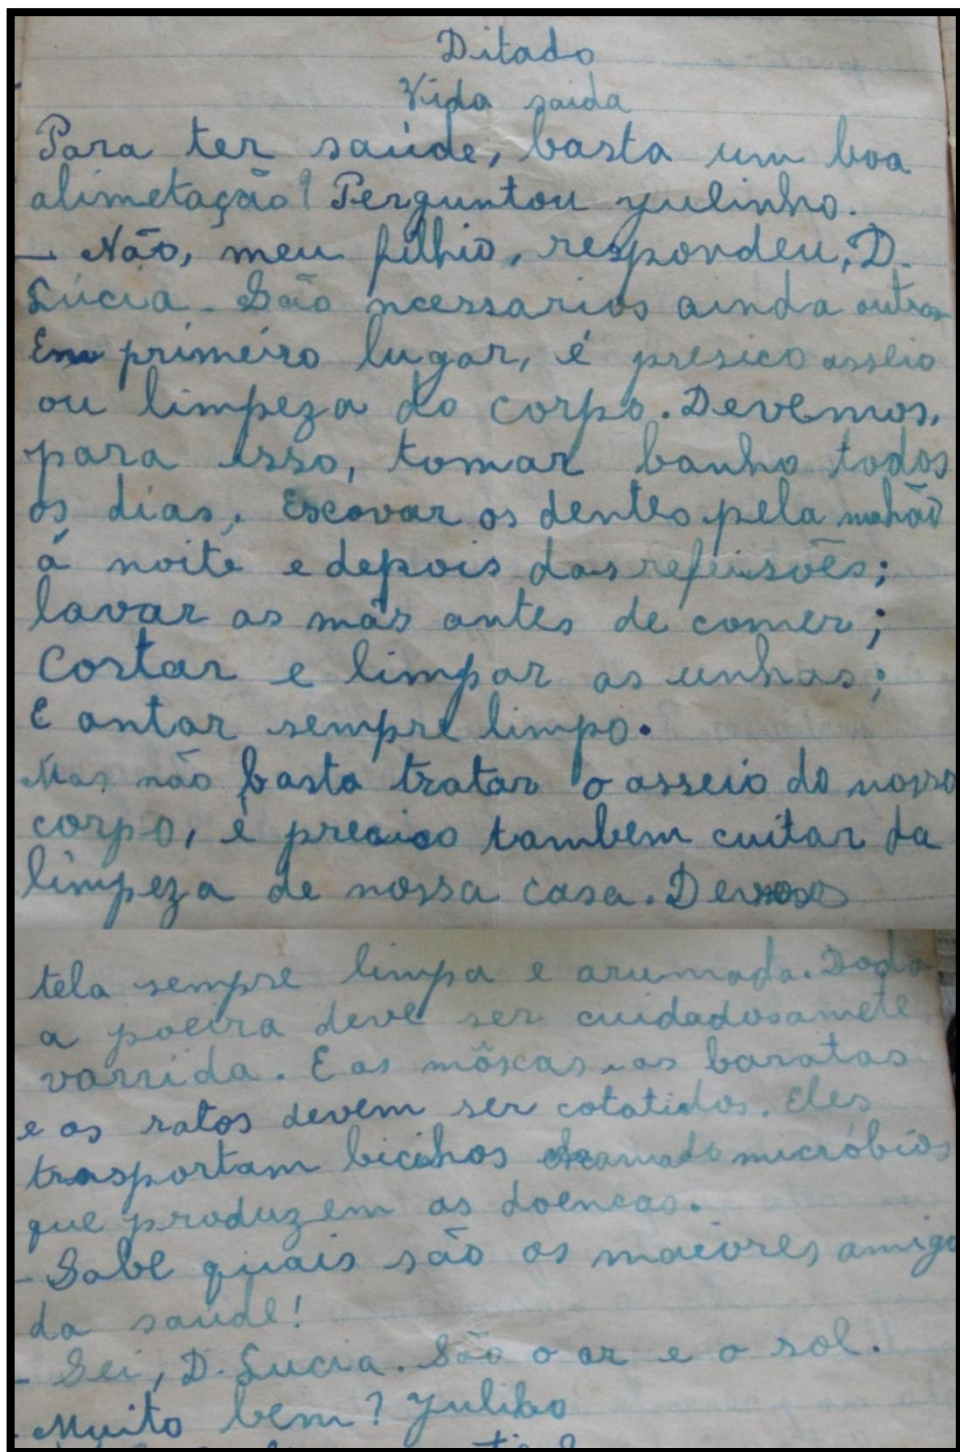 Ditado
Vida saida
Para ter saúde, basta um boa
alimetação? Perguntou yulinho.
- Não, meu filhio, respondeu, D.
Lúcia. São ncessarios ainda outras
Em primeiro lugar, é presico asseio
ou limpeza do corpo. Devemos,
para isso, tomar banho todos
os dias,. Escovar os dentes pela mahão
á noite e depois das refeisões;
lavar as mãs antes de comer;
Costar e limpar as unhas;
E antar sempre limpo.
Mas não basta tratar o asseio do nosso
corpo, é preciso tambem cuitar da
limpeza de nossa casa. Devemos
tela sempre limpa e arumada. Doda
a poeira deve ser cuidadosamete
varrida. E as môscas, as baratas
e os ratos devem ser cotatidos. Eles
trasportam bicihos chamads micróbios
que produzem as doencas.
- Sabe quais são os maiores amigo
da saúde!
- Sei, D. Lucia. São o ar e o sol.
- Muito bem? Yuliho